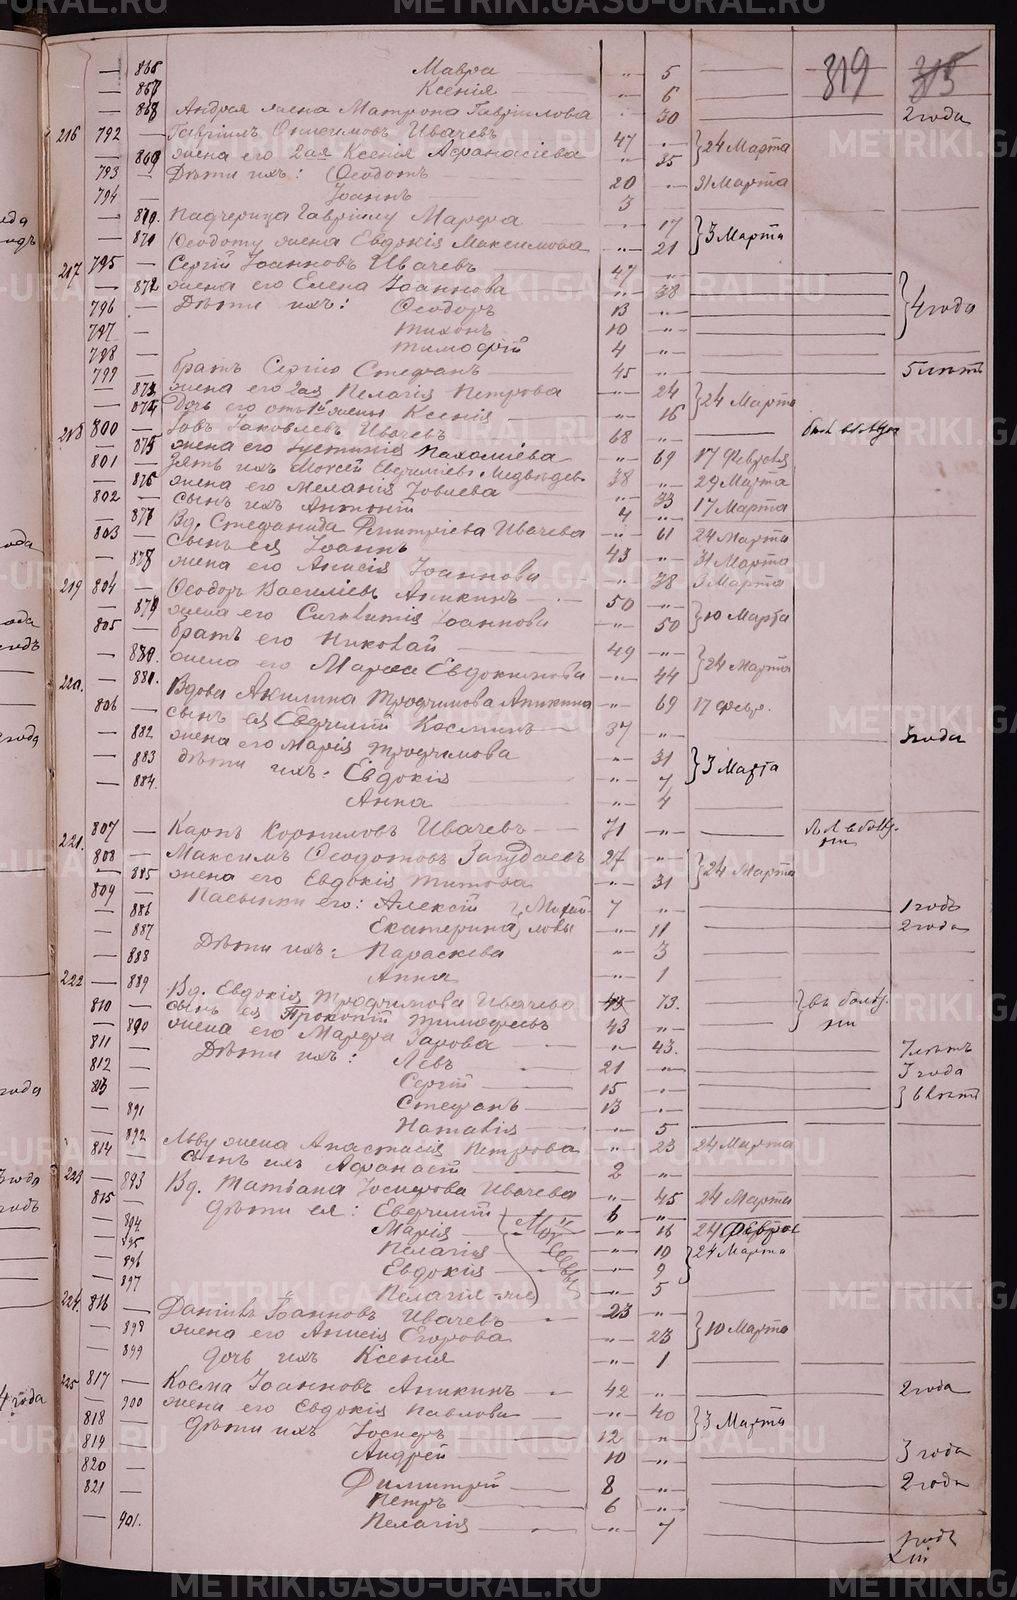 319 315
— 866 Мавра — „ — 5
— 867 Ксенія „ — 6
— 868 Андрея жена Матрона Гаврилова „ 30 2 года
216 792 — Гавріилъ Онисимовъ Ивачевъ 47 „ } 24 Марта
— 869 жена его 2ая Ксенія Афанасіева „ 35
793 — Дѣти ихъ: Ѳеодотъ 20 „ 31 Марта
794 — Іоаннъ 3
— 870. Падчерица Гавріилу Марѳа „ 17 } 3 Марта
— 871 Ѳеодоту жена Евдокія Максимова „ 21
217 795 — Сергій Іоанновъ Ивачевъ 47 „ } 4 года
— 872 жена его Елена Іоаннова „ 38
796 — Дѣти ихъ: Ѳеодоръ 13 „
797 — Тихонъ 10 „
798 — Тимоѳей 4 „
799 — братъ Сергію Стефанъ 45 „ 5 лѣтъ
— 873 жена его 2ая Пелагія Петрова 24 } 24 Марта
— 874 Дочь его отъ 1й жены Ксенія „ 16
218 800 — Іовъ Іаковлевъ Ивачевъ 68 „
— 875 жена его Іустинія Пахоміева „ 69 17 Февраля
801 — Зять ихъ Моисей Евѳиміевъ Медвѣдев 38 „ 24 Марта
— 876 жена его Меланія Іовлева „ 33 17 Марта
802 — сынъ ихъ Антоній 4
— 877 Вд. Стефанида Димитріева Ивачева „ 61 24 Марта
803 — Сынъ ея Іоаннъ 43 „ 31 Марта
— 878 жена его Анисія Іоаннова „ 38 3 Марта
219 804 — Ѳеодоръ Василіевъ Аникинъ 50 „ } 10 Марта
— 879 жена его Іоаннова 50
805 — братъ его Николай 49 „ } 24 Марта
— 880. жена его Марѳа Евдокимова „ 44
220. — 881. Вдова Акилина Трофимова Аникина „ 69 17 февр.
806 — сынъ ея Евѳимій Косминъ 37 „ 3 года
— 882 жена его Марія Трофимова „ 31 } 3 Марта
— 883 дѣти ихъ: Евдокія „ 7
— 884. Анна „ 4
221. 807 — Карпъ Корниловъ Ивачевъ 71 „
808 — Максимъ Ѳеодотовъ Загудаевъ 27 „ } 24 Марта
— 885 жена его Евдокія Титова „ 31
809 — Пасынки его: Алексій } Михай 7 „ 1 годъ
— 886 Екатерина } ловы „ 11 2 года
— 887 Дѣти ихъ: Параскева „ 3
— 888 Анна „ 1
222 — 889 Вд. Евдокія Трофимова Ивачева 73. }
810 — сынъ ея Прокопій Тимоѳеевъ 43 „
— 890 жена его Марѳа „ 43. 7 лѣтъ
811 — Дѣти ихъ: Левъ 21 „ 3 года
812 — Сергій 15 „ } 6 лѣтъ
813 — Стефанъ 13 „
— 891 Наталія „ 5
— 892 Льву жена Анастасія Петрова „ 23 24 Марта
814 — сынъ ихъ Афанасій 2 „
223 — 893 Вд. Татьана Іосифова Ивачева „ 45 24 Марта
815 — Дѣти ея: Евѳимій 6 „
— 894 Марія „ 16 24 Февра
— 895 Пелагія „ 10 } 24 Марта
— 896 Евдокія „ 9
— 897 Пелагія „ 5
224. 816 — Даніилъ Іоанновъ Ивачевъ 23 „ } 10 Марта
— 898 жена его Анисія Егорова „ 23
— 899 дочь ихъ Ксенія „ 1
225 817 — Косма Іоанновъ Аникинъ 42 „ 2 года
— 900 жена его Евдокія Павлова „ 40 } 3 Марта
818 — Дѣти ихъ Іосифъ 12 „
819 — Андрей 10 „ 3 года
820 — Димитрій 8 „ 2 года
821 — Петръ 6 „
— 901. Пелагія „ 7
METRIKI.GASO-URAL.RU